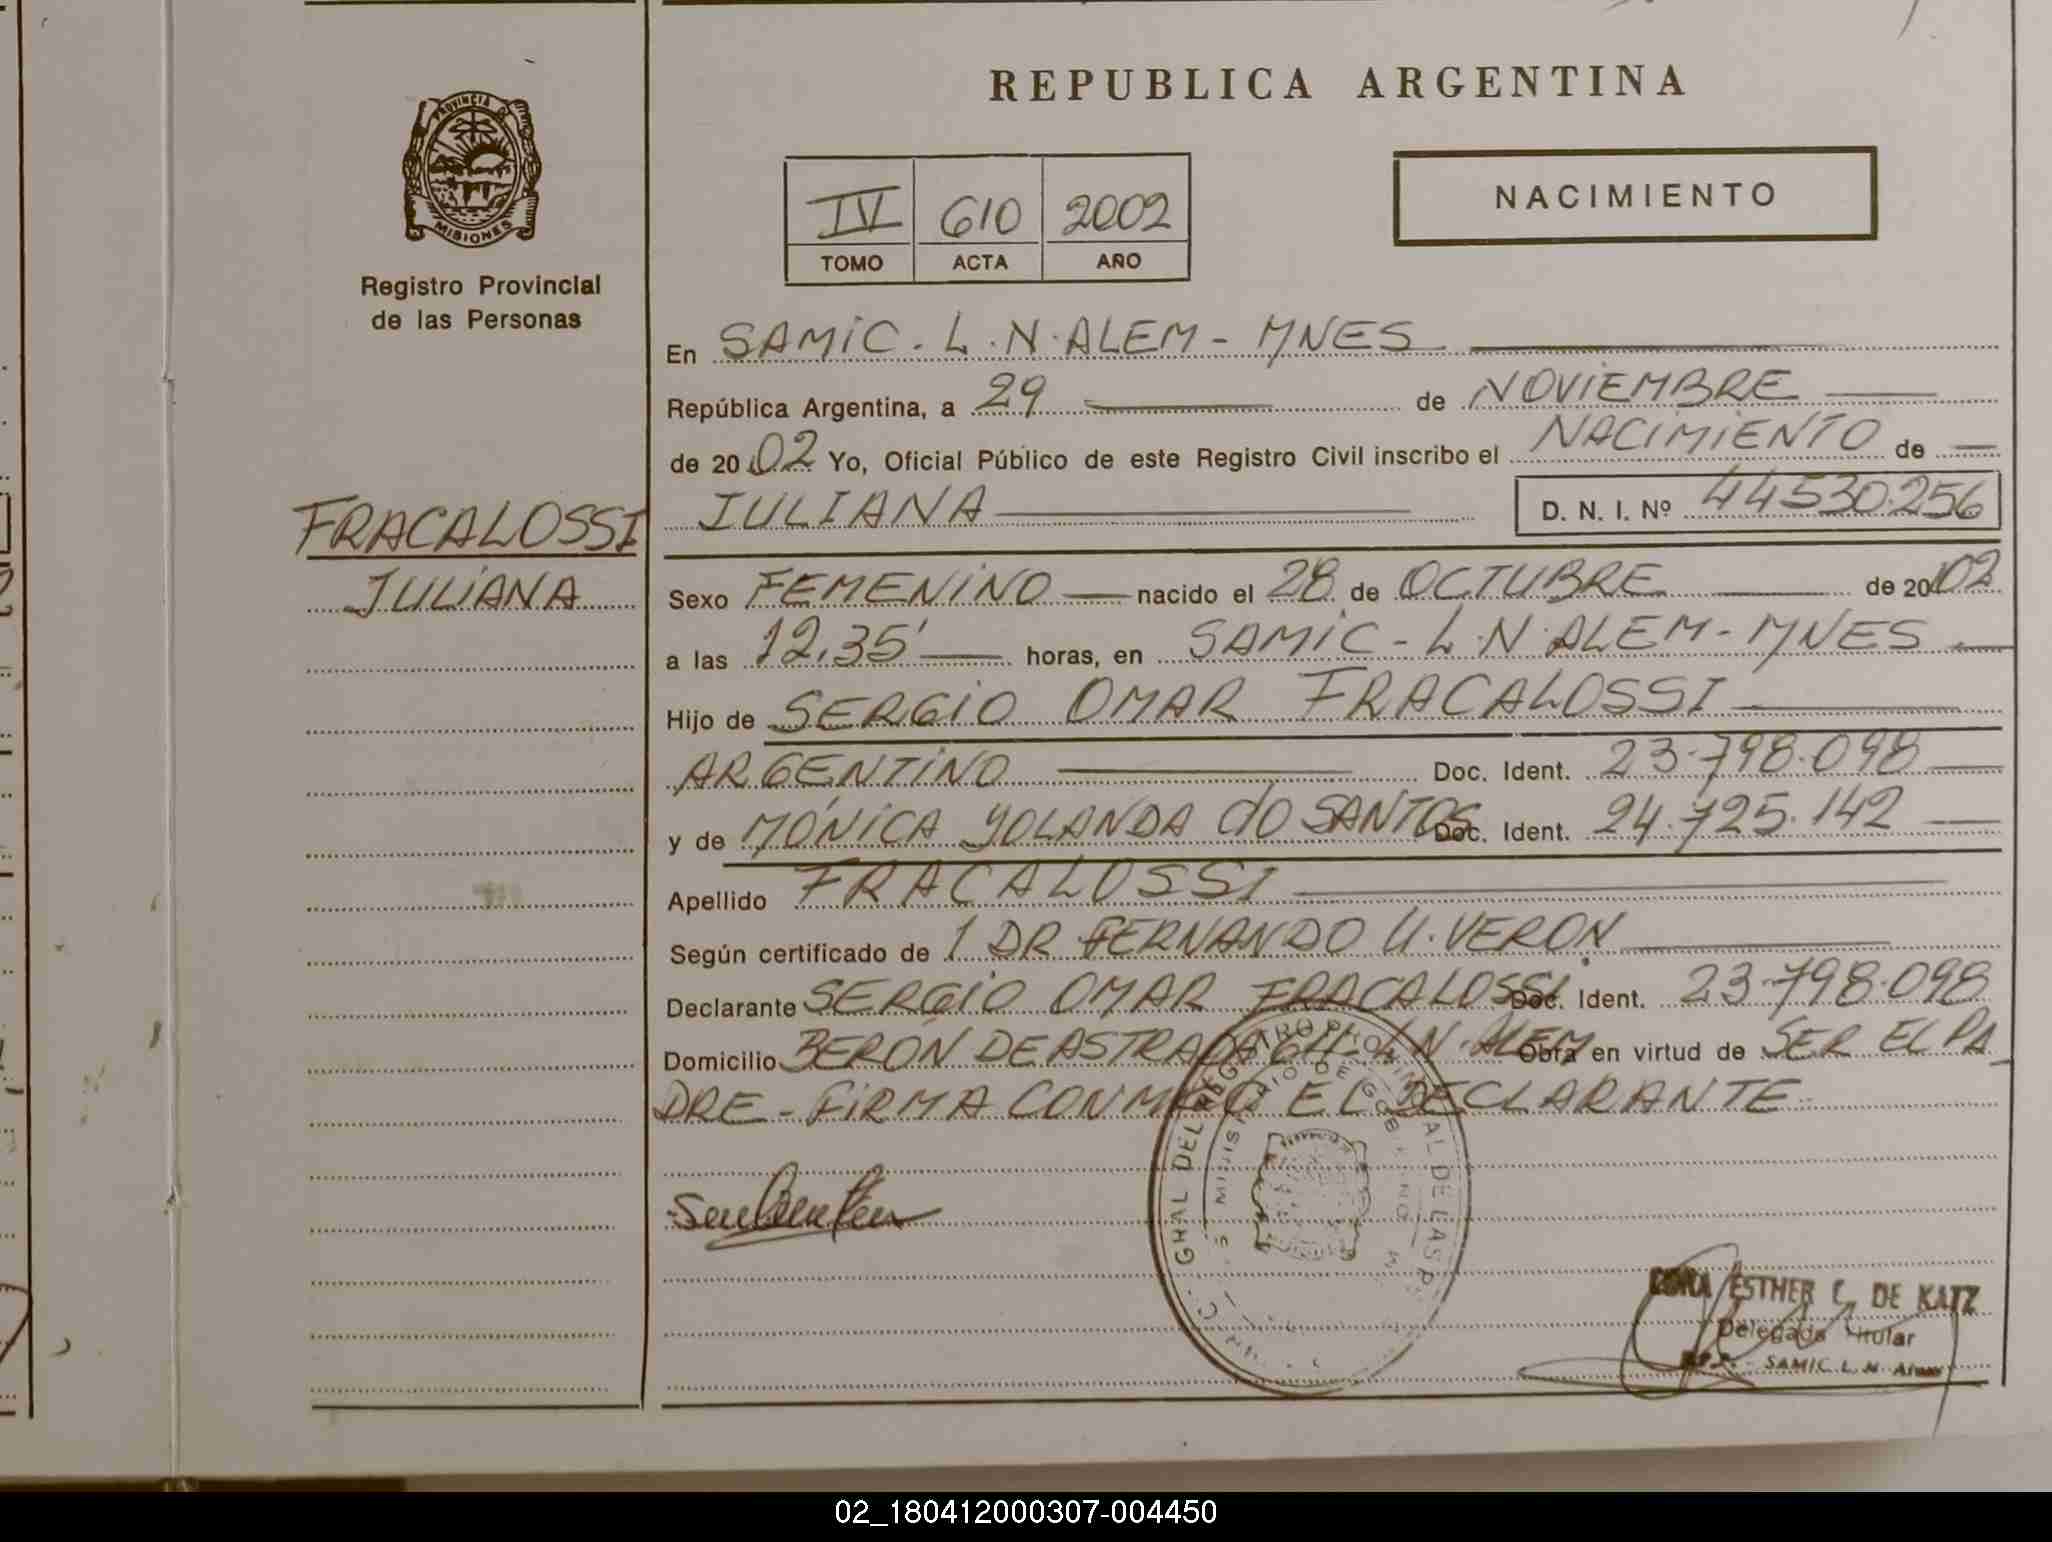 REPUBLICA ARGENTINA
PROVINCIA DE
MISIONES
Registro Provincial
de las Personas
IV 610 2002
TOMO ACTA AÑO
NACIMIENTO
En SAMIC. L. N. ALEM - MNES
República Argentina, a 29 de NOVIEMBRE
de 2002 Yo, Oficial Público de este Registro Civil inscribo el NACIMIENTO de
JULIANA D. N. I. Nº 44530.256
FRACALOSSI
JULIANA
Sexo FEMENINO nacido el 28 de OCTUBRE de 2002
a las 12,35' horas, en SAMIC - L. N. ALEM - MNES
Hijo de SERGIO OMAR FRACALOSSI
ARGENTINO Doc. Ident. 23.798.098
y de MÓNICA YOLANDA dO SANTOS Doc. Ident. 24.725.142
Apellido FRACALOSSI
Según certificado de 1 DR FERNANDO U. VERON
Declarante SERGIO OMAR FRACALOSSI Doc. Ident. 23.798.098
Domicilio BERÓN DE ASTRADA L. N. ALEM Obra en virtud de SER EL PA
DRE - FIRMA CONMIGO EL DECLARANTE
ESTHER C. DE KATZ
Delegado Titular
SAMIC L. N. Alem
02_180412000307-004450